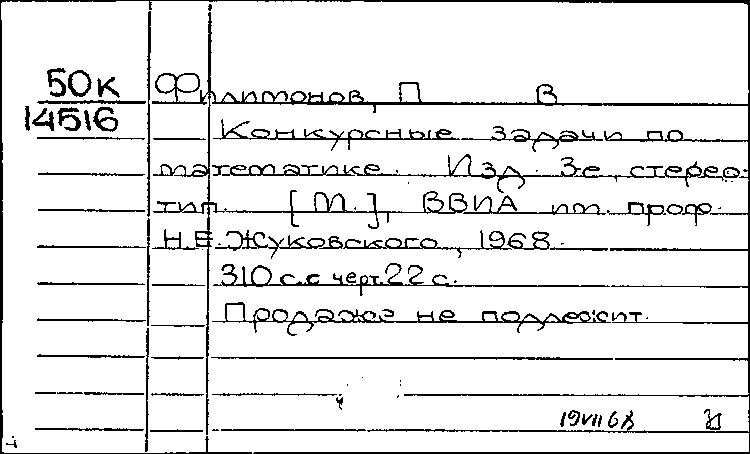 50к Филимонов, П В
14516
Конкурсные задачи по
математике. Изд. 3-е, стерео-
тип. [М.], ВВИА им. проф.
Н.Е. Жуковского, 1968.
310 с. с черт. 22 с.
Продаже не подлежит.
19 VII 68